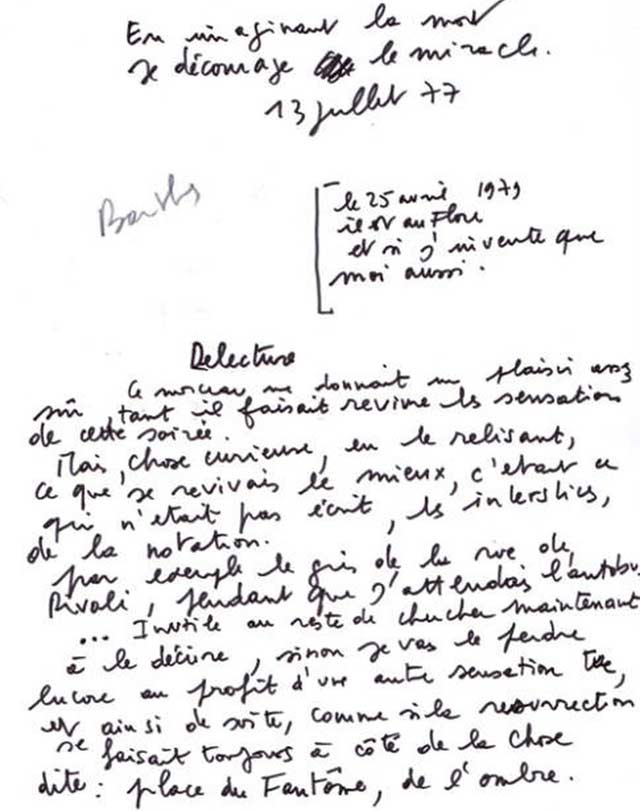 En imaginant la mort
je décourage le miracle.
13 juillet 77
Barthes
le 25 avril 1979
il est au Flore
et si j'invente que
moi aussi.
Relecture
Ce morceau me donnait un plaisir assez
sûr, tant il faisait revivre les sensations
de cette soirée.
Mais, chose curieuse, en le relisant,
ce que je revivais le mieux, c'etait ce
qui n'etait pas écrit, les interstices,
de la notation.
par exemple le gris de la rue de
Rivoli, pendant que j'attendais l'autobus
... Inutile au reste de chercher maintenant
à le décrire, sinon je vas le perdre
encore au profit d'une autre sensation tue,
et ainsi de suite, comme si la resurrection
se faisait toujours à côté de la chose
dite : place du Fantôme, de l'ombre.